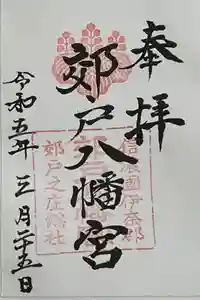 奉拝
郊戸八幡宮
信濃國伊奈郡
郊戸之庄総社
令和五年 三月二十五日